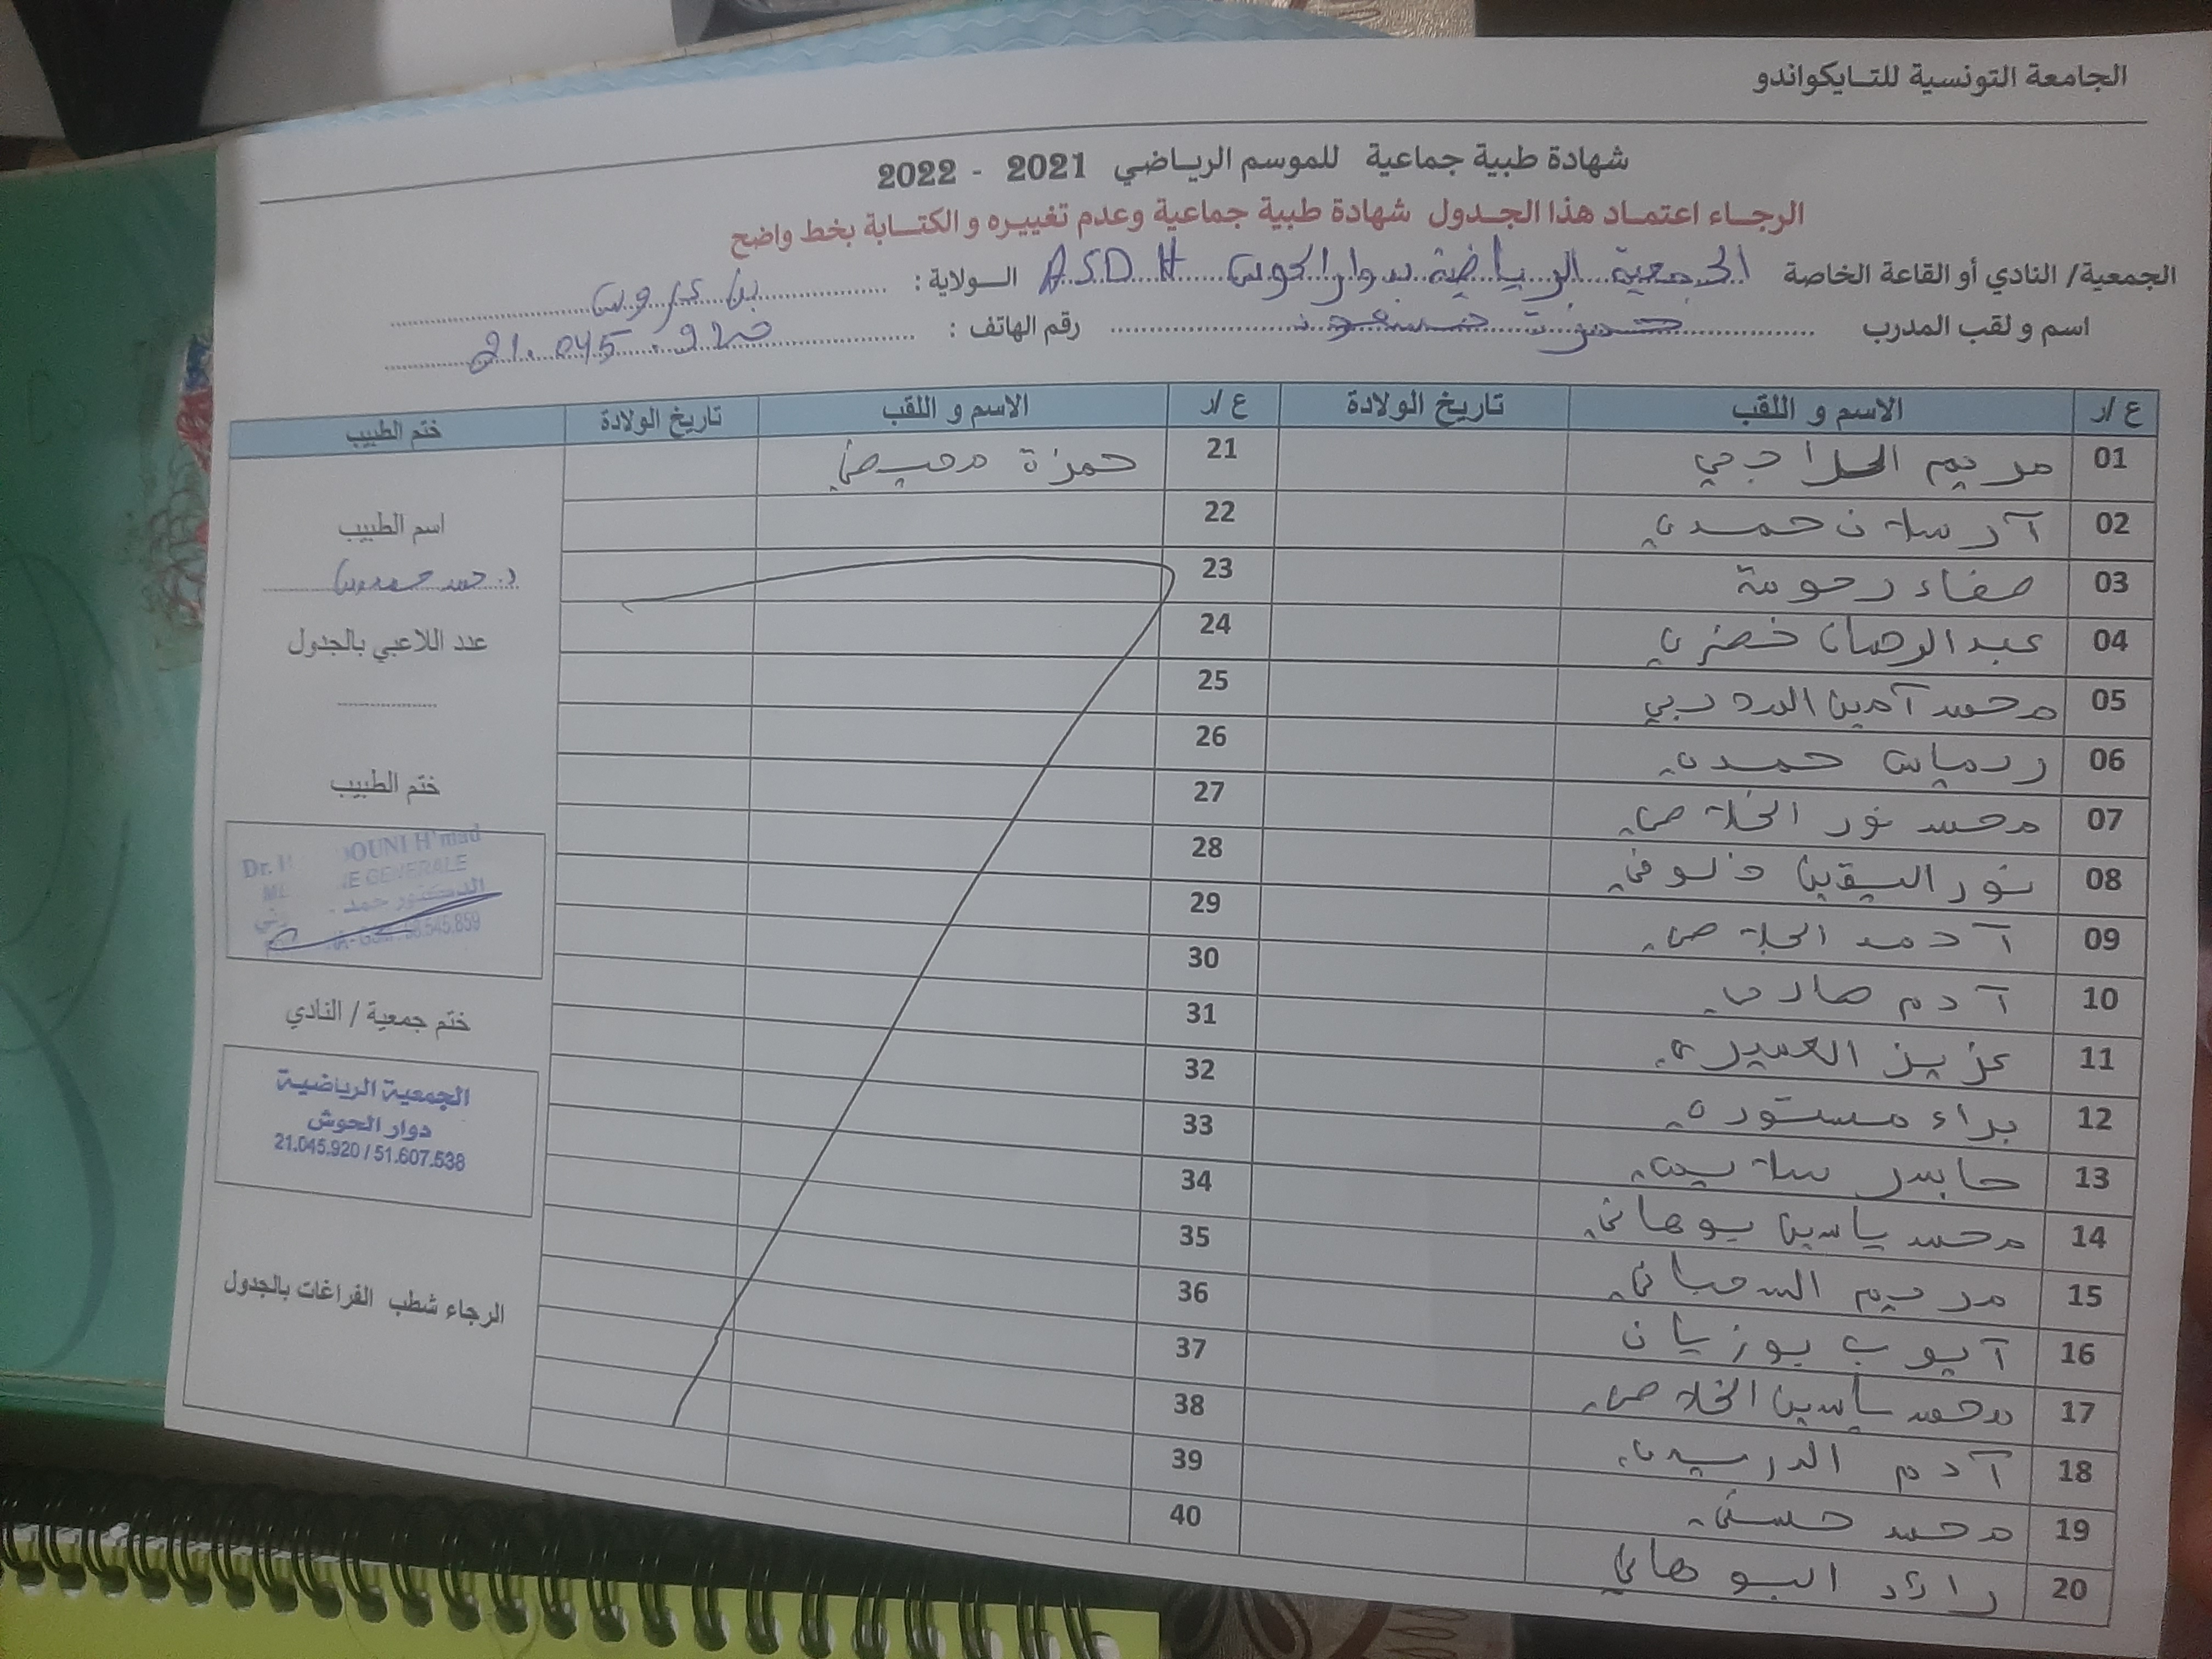 الجامعة التونسية للتايكواندو
شهادة طبية جماعية للموسم الرياضي 2021 - 2022
الرجاء اعتماد هذا الجدول شهادة طبية جماعية وعدم تغييره و الكتابة بخط واضح
الجمعية/ النادي أو القاعة الخاصة الجمعية الرياضية بدوار الحوش A.S.D.H الولاية : بن عروس
اسم و لقب المدرب حمزة رقم الهاتف : 21.045.920
ع /ر الاسم و اللقب تاريخ الولادة ع /ر الاسم و اللقب تاريخ الولادة ختم الطبيب
01 مريم 21 حمزة
02 حمدي 22
03 صفاء رحومة 23
04 عبد الرحمان خضري 24
05 محمد آمين 25
06 حمدي 26
07 محمد نور الخلاصي 27
08 نور اليقين 28
09 29
10 آدم 30
11 عزيز العميري 31
12 براء مستوري 32
13 33
14 محمد ياسين بوهاني 34
15 مريم السحباني 35
16 آيوب بوزيان 36
17 محمد ياسين الخلاصي 37
18 آدم الدريدي 38
19 محمد حسني 39
20 رائد البوهاني 40
اسم الطبيب
عدد اللاعبي بالجدول
ختم الطبيب
Dr. OUNI H'mad
E GENERALE
الدكتور حمد
545.859
ختم جمعية / النادي
الجمعية الرياضية
دوار الحوش
21.045.920 / 51.607.538
الرجاء شطب الفراغات بالجدول